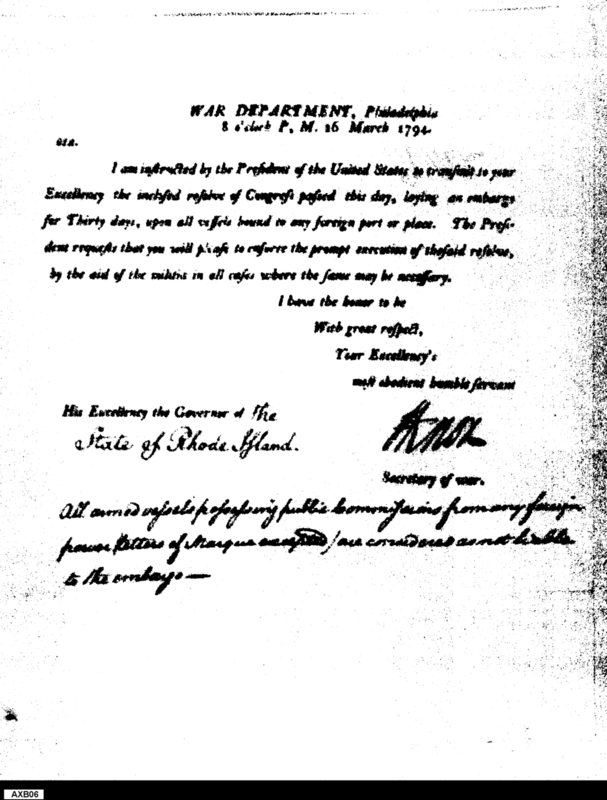 WAR DEPARTMENT, Philadelphia
8 o'clock P. M. 26 March 1794.
SIR.
I am instructed by the President of the United States to transmit to your
Excellency the inclosed resolve of Congress passed this day, laying an embargo
for Thirty days, upon all vessels bound to any foreign port or place. The Presi-
dent requests that you will please to enforce the prompt execution of the said resolve,
by the aid of the militia in all cases where the same may be necessary.
I have the honor to be
With great respect,
Your Excellency's
most obedient humble servant
His Excellency the Governor of the
State of Rhode Island.
HKnox
Secretary of war.
All armed vessels possessing public Commissions from any foreign
power (letters of Marque excepted) are considered as not liable
to the embargo —
AXB06